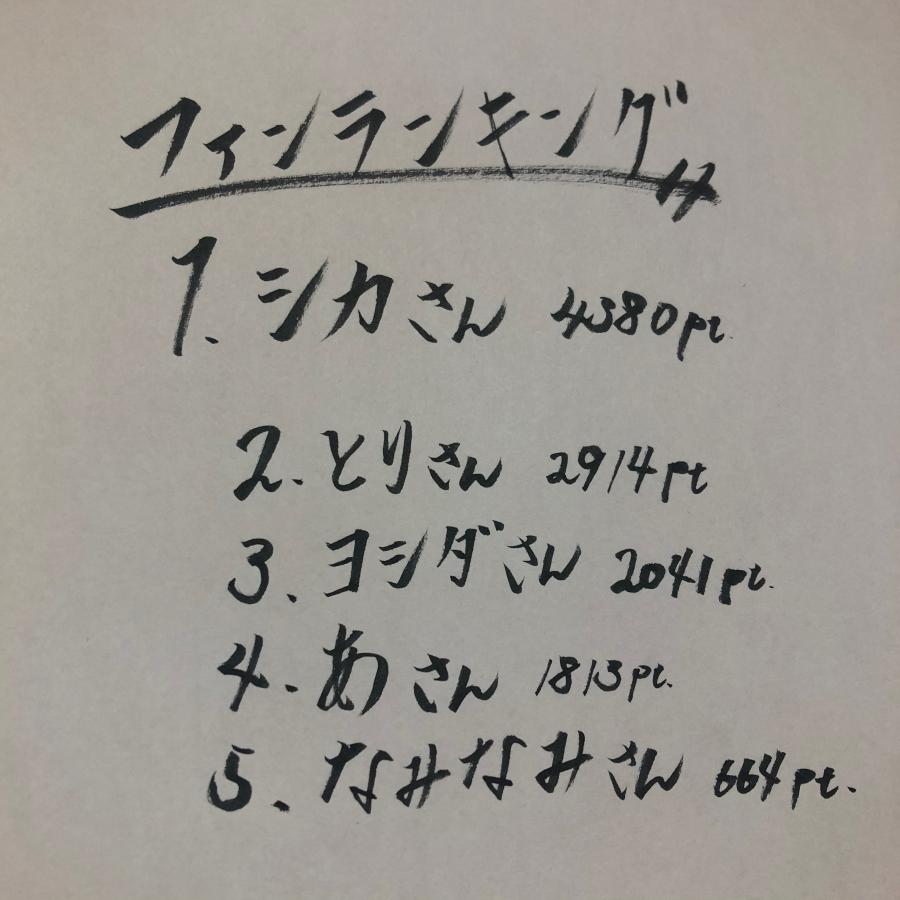 フィンランキング〃
1. シカさん 4380pt.
2. とりさん 2914pt
3. ヨシダさん 2041pt.
4. あさん 1813pt.
5. なみなみさん 664pt.